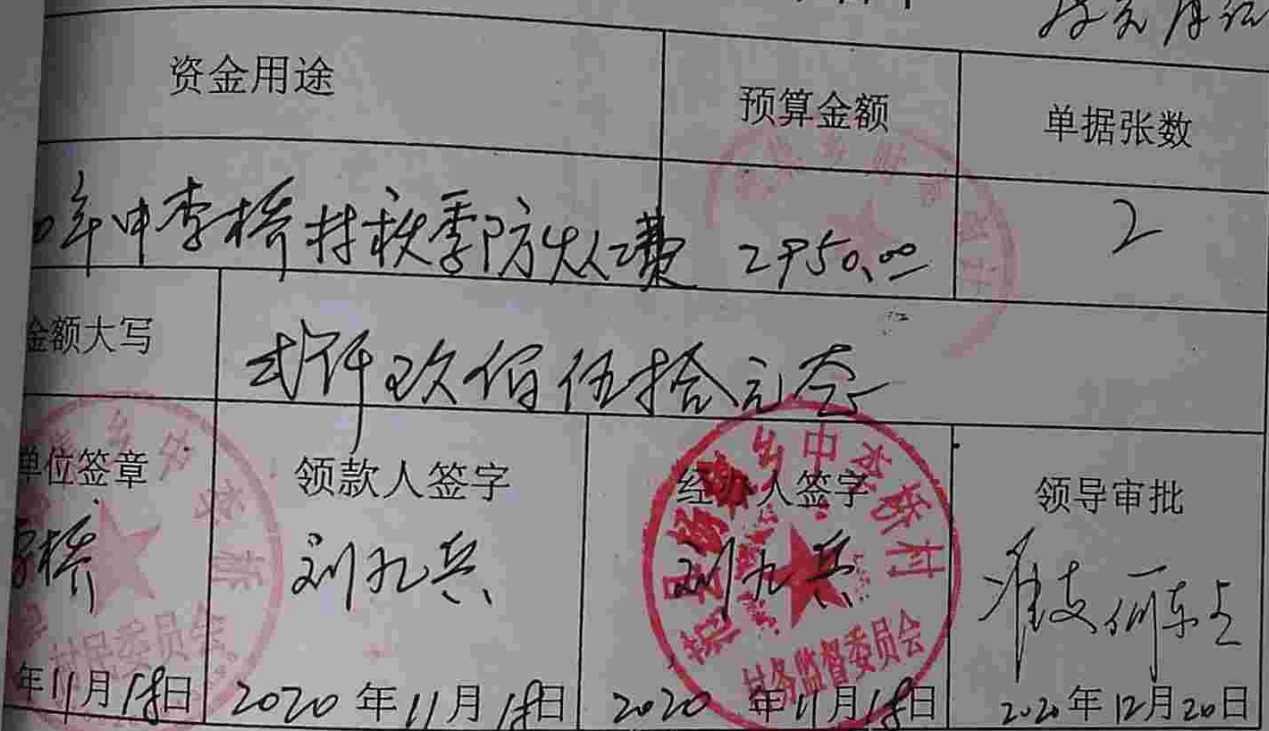 资金用途 预算金额 单据张数
0年中李桥村秋季防火费 2950.00 2
金额大写 贰仟玖佰伍拾元整
单位签章 领款人签字 经办人签字 领导审批
李桥 刘九兵 刘九兵 准支
年11月18日 2020年11月18日 2020年11月18日 2020年12月20日
乡中李桥
村民委员会
乡中李桥村
村务监督委员会